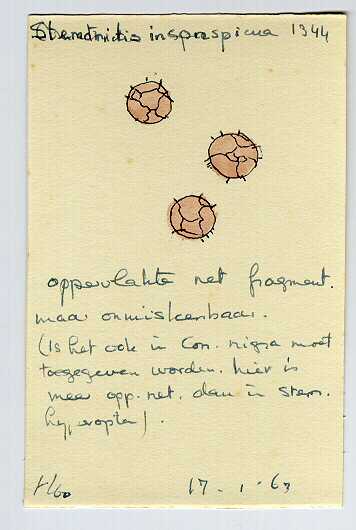 Stemonitis inconspicua 1344
oppervlakte net fragment.
maar onmiskenbaar.
(Is het ook in Com. nigra moet
toegegeven worden. hier is
meer opp. net. dan in Stem.
hyperopta).
17-1-63